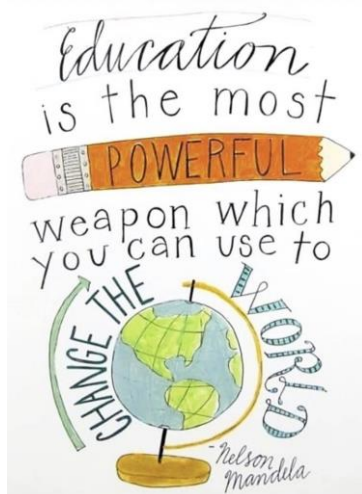 Education
is the most
POWERFUL
weapon which
you can use to
CHANGE THE
WORLD
- Nelson
Mandela